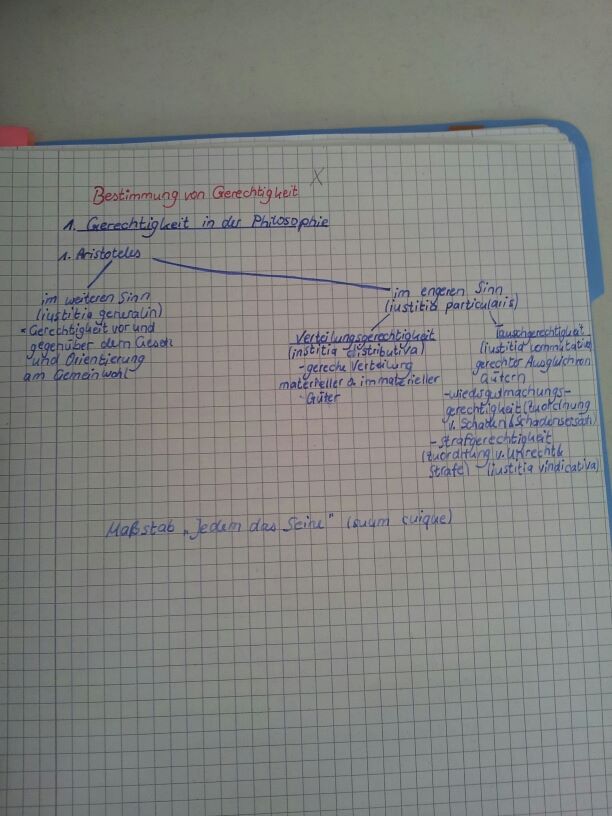 Bestimmung von Gerechtigkeit
X
1. Gerechtigkeit in der Philosophie
1. Aristoteles
im weiteren Sinn
(iustitia generalin)
Gerechtigkeit vor und
gegenüber dem Gesetz
und Orientierung
am Gemeinwohl
im engeren Sinn
(iustitia particularis)
Verteilungsgerechtigkeit
(institia distributiva)
- gereche Verteilung
materieller & immaterieller
Güter
Tauschgerechtigkeit
(iustitia commutativa)
gerechter Ausgleich von
Gütern
- wiedergutmachungs-
gerechtigkeit (zuordnung
v. Schaden & Schadensersatz)
- Strafgerechtigkeit
(zuordnung v. Unrecht &
Strafe) - (iustitia vindicativa)
Maßstab „Jedem das Seine" (suum cuique)